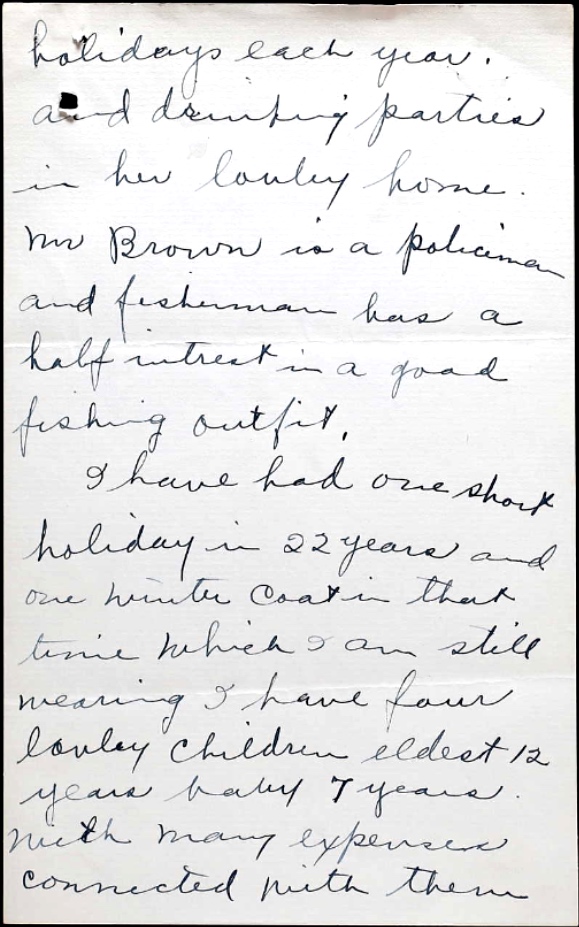 holidays each year.
and drinking parties
in her lovley home.
Mr Brown is a policiman
and fisherman has a
half intrest in a good
fishing outfit.
I have had one short
holiday in 22 years and
one winter coat in that
time which I am still
wearing I have four
lovley children eldest 12
years baby 7 years.
with many expenses
connected with them